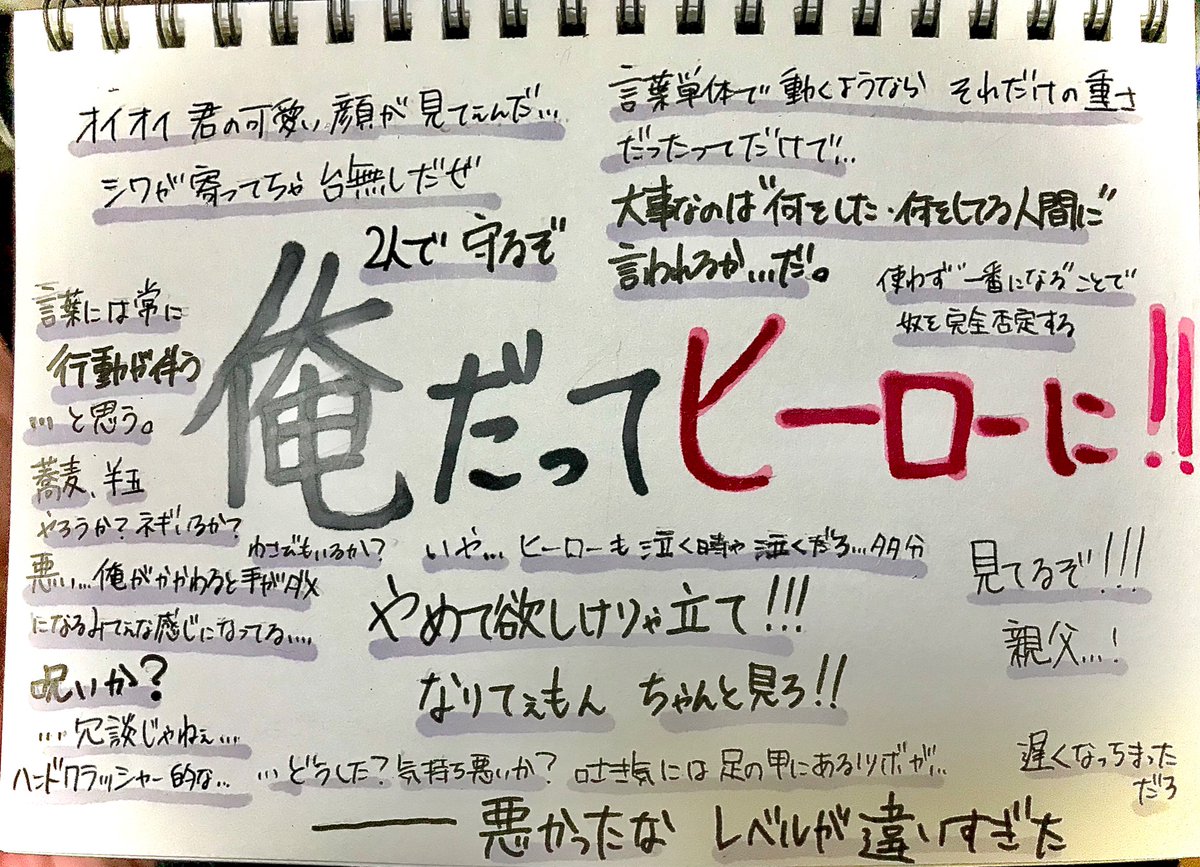 オイオイ 君の可愛い顔が 見てぇんだ…
シワが 寄ってちゃ 台無しだぜ
言葉単体で 動くようなら それだけの重さ
だったってだけで…
大事なのは"何をした・何をしてる人間に"
言われるか…だ。
2人で 守るぞ
使わず"一番になる"ことで
奴を完全否定する
言葉には常に
行動が伴う
…と思う。
俺だってヒーローに!!
蕎麦、半玉
やろうか? ネギいるか?
わさびもいるか?
悪い…俺がかかわると手がダメ
になるみてぇな感じになってる…
呪いか?
…冗談じゃねぇ…
ハンドクラッシャー的な…
いや… ヒーローも 泣く時ゃ 泣くだろ…多分
やめて欲しけりゃ立て!!!
なりてぇもん ちゃんと見ろ!!
見てるぞ!!!
親父…!
…どうした? 気持ち悪いか? 吐き気には 足の甲にあるツボが…
遅くなっちまった
だろ
――悪かったな レベルが違いすぎた